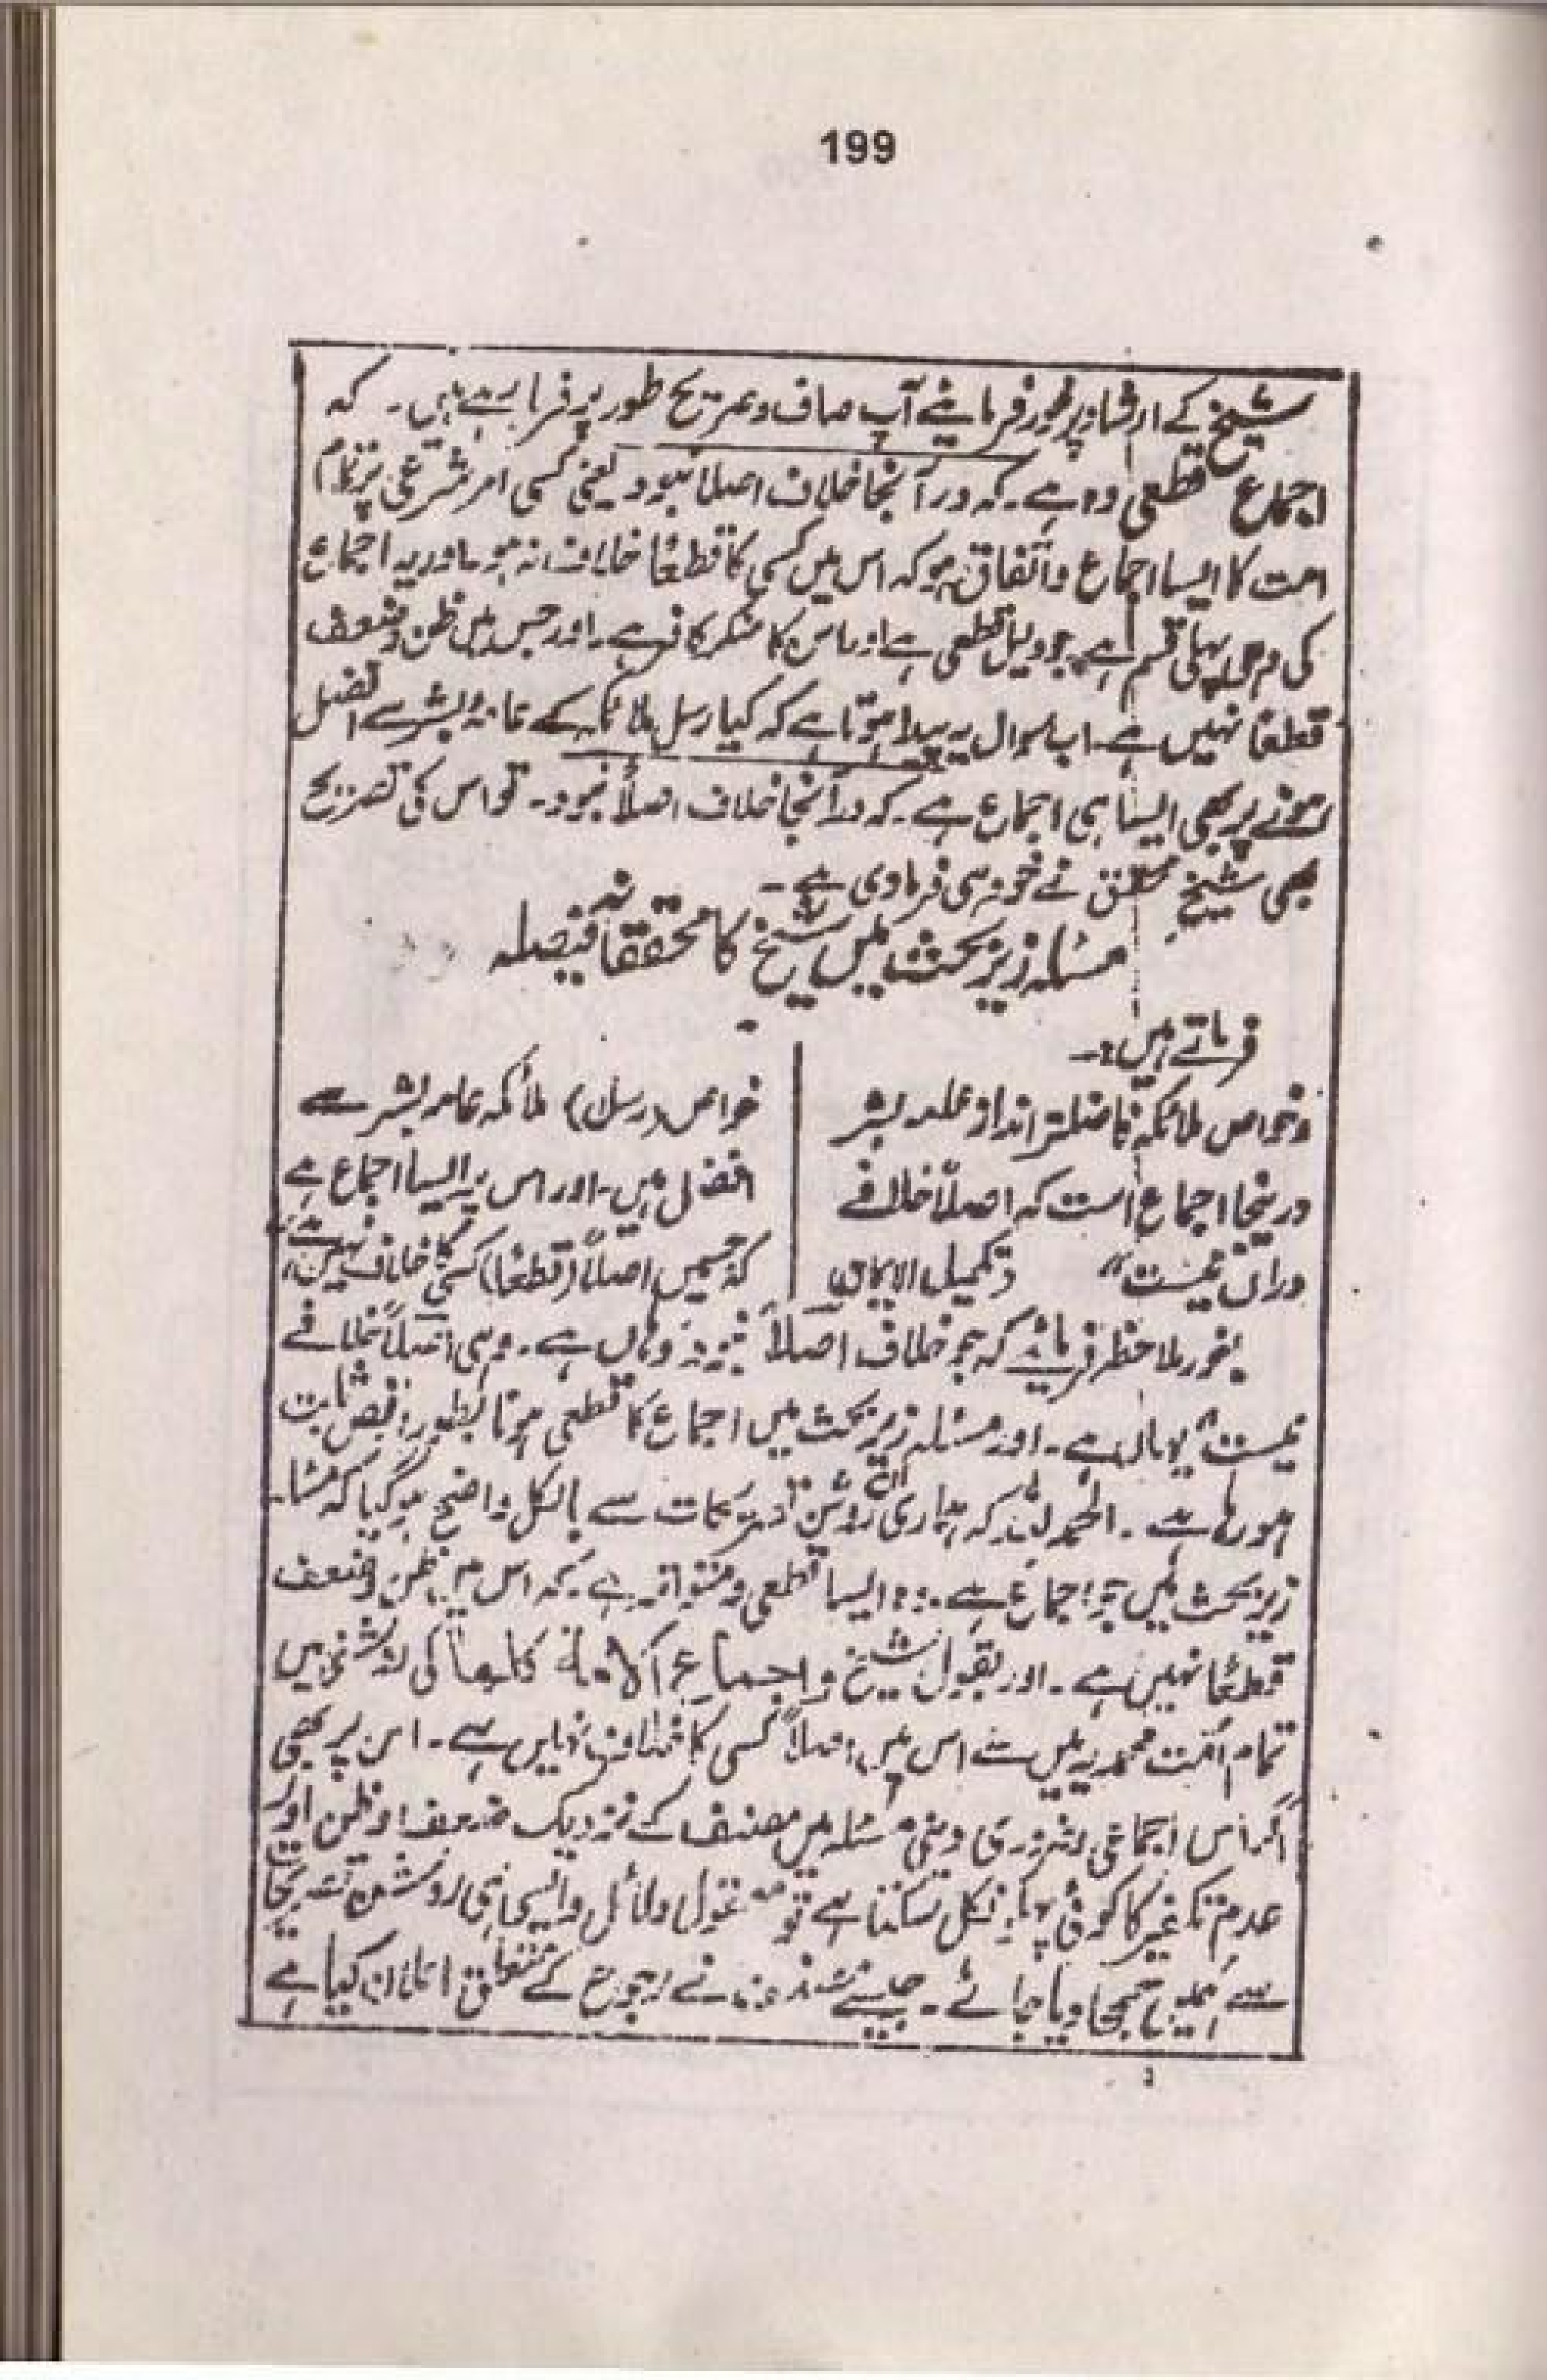 199
شیخ کے ارشاد پر غور فرمائیے آپ صاف و صریح طور پر فرما رہے ہیں۔ کہ
اجماع قطعی وہ ہے۔ کہ در آنجا خلاف اصلا نبود یعنی کسی امر شرعی پر تمام
امت کا ایسا اجماع و اتفاق ہو کہ اس میں کسی کا قطعاً خلاف نہ ہو اور یہ اجماع
کی وہی پہلی قسم ہے جو دلیل قطعی ہے اور اس کا منکر کافر ہے۔ اور جس میں ظن و ضعف
قطعاً نہیں ہے۔ اب سوال یہ پیدا ہوتا ہے کہ کیا رسل ملائکہ کے عامۂ بشر سے افضل
ہونے پر بھی ایسا ہی اجماع ہے۔ کہ در آنجا خلاف اصلاً نبود۔ تو اس کی تصریح
بھی شیخ محقق نے خود ہی فرما دی ہے۔
مسئلہ زیر بحث میں شیخ کا محققانہ فیصلہ
فرماتے ہیں:۔
وخواص ملائکہ فاضلتر اند از عامہ بشر
درینجا اجماع است کہ اصلاً خلافے
دران نیست" (تکمیل الایمان)
خواص (رسل) ملائکہ عامہ بشر سے
افضل ہیں۔ اور اس پر ایسا اجماع ہے
کہ جسمیں اصلاً (قطعاً) کسی کا خلاف نہیں"
بغور ملاحظہ فرمائیے کہ جو خلاف اصلاً نبود وہاں ہے۔ وہی اصلاً خلافے
نیست" یہاں ہے۔ اور مسئلہ زیر بحث میں اجماع کا قطعی ہونا بطور نص ثابت
ہو رہا ہے۔ الحمد للہ کہ ہماری ان روشن تصریحات سے بالکل واضح ہو گیا کہ مسئلہ
زیر بحث میں جو اجماع ہے۔ وہ ایسا قطعی و متواتر ہے۔ کہ اس میں ظن و ضعف
قطعاً نہیں ہے۔ اور بقول شیخ و اجماع الامۃ کلھا کی روشنی میں
تمام امت محمدیہ میں سے اس میں اصلاً کسی کا خلاف نہیں ہے۔ اس پر بھی
اگر اس اجماعی ضروری دینی مسئلہ میں مصنف کے نزدیک ضعف اور ظن اور
عدم تکفیر کا کوئی پہلو نکل سکتا ہے تو معقول دلائل و ایسی ہی روشن تصریحات
سے ہمیں سمجھا دیا جائے۔ جیسے نے رجوع کے متعلق اعلان کیا ہے